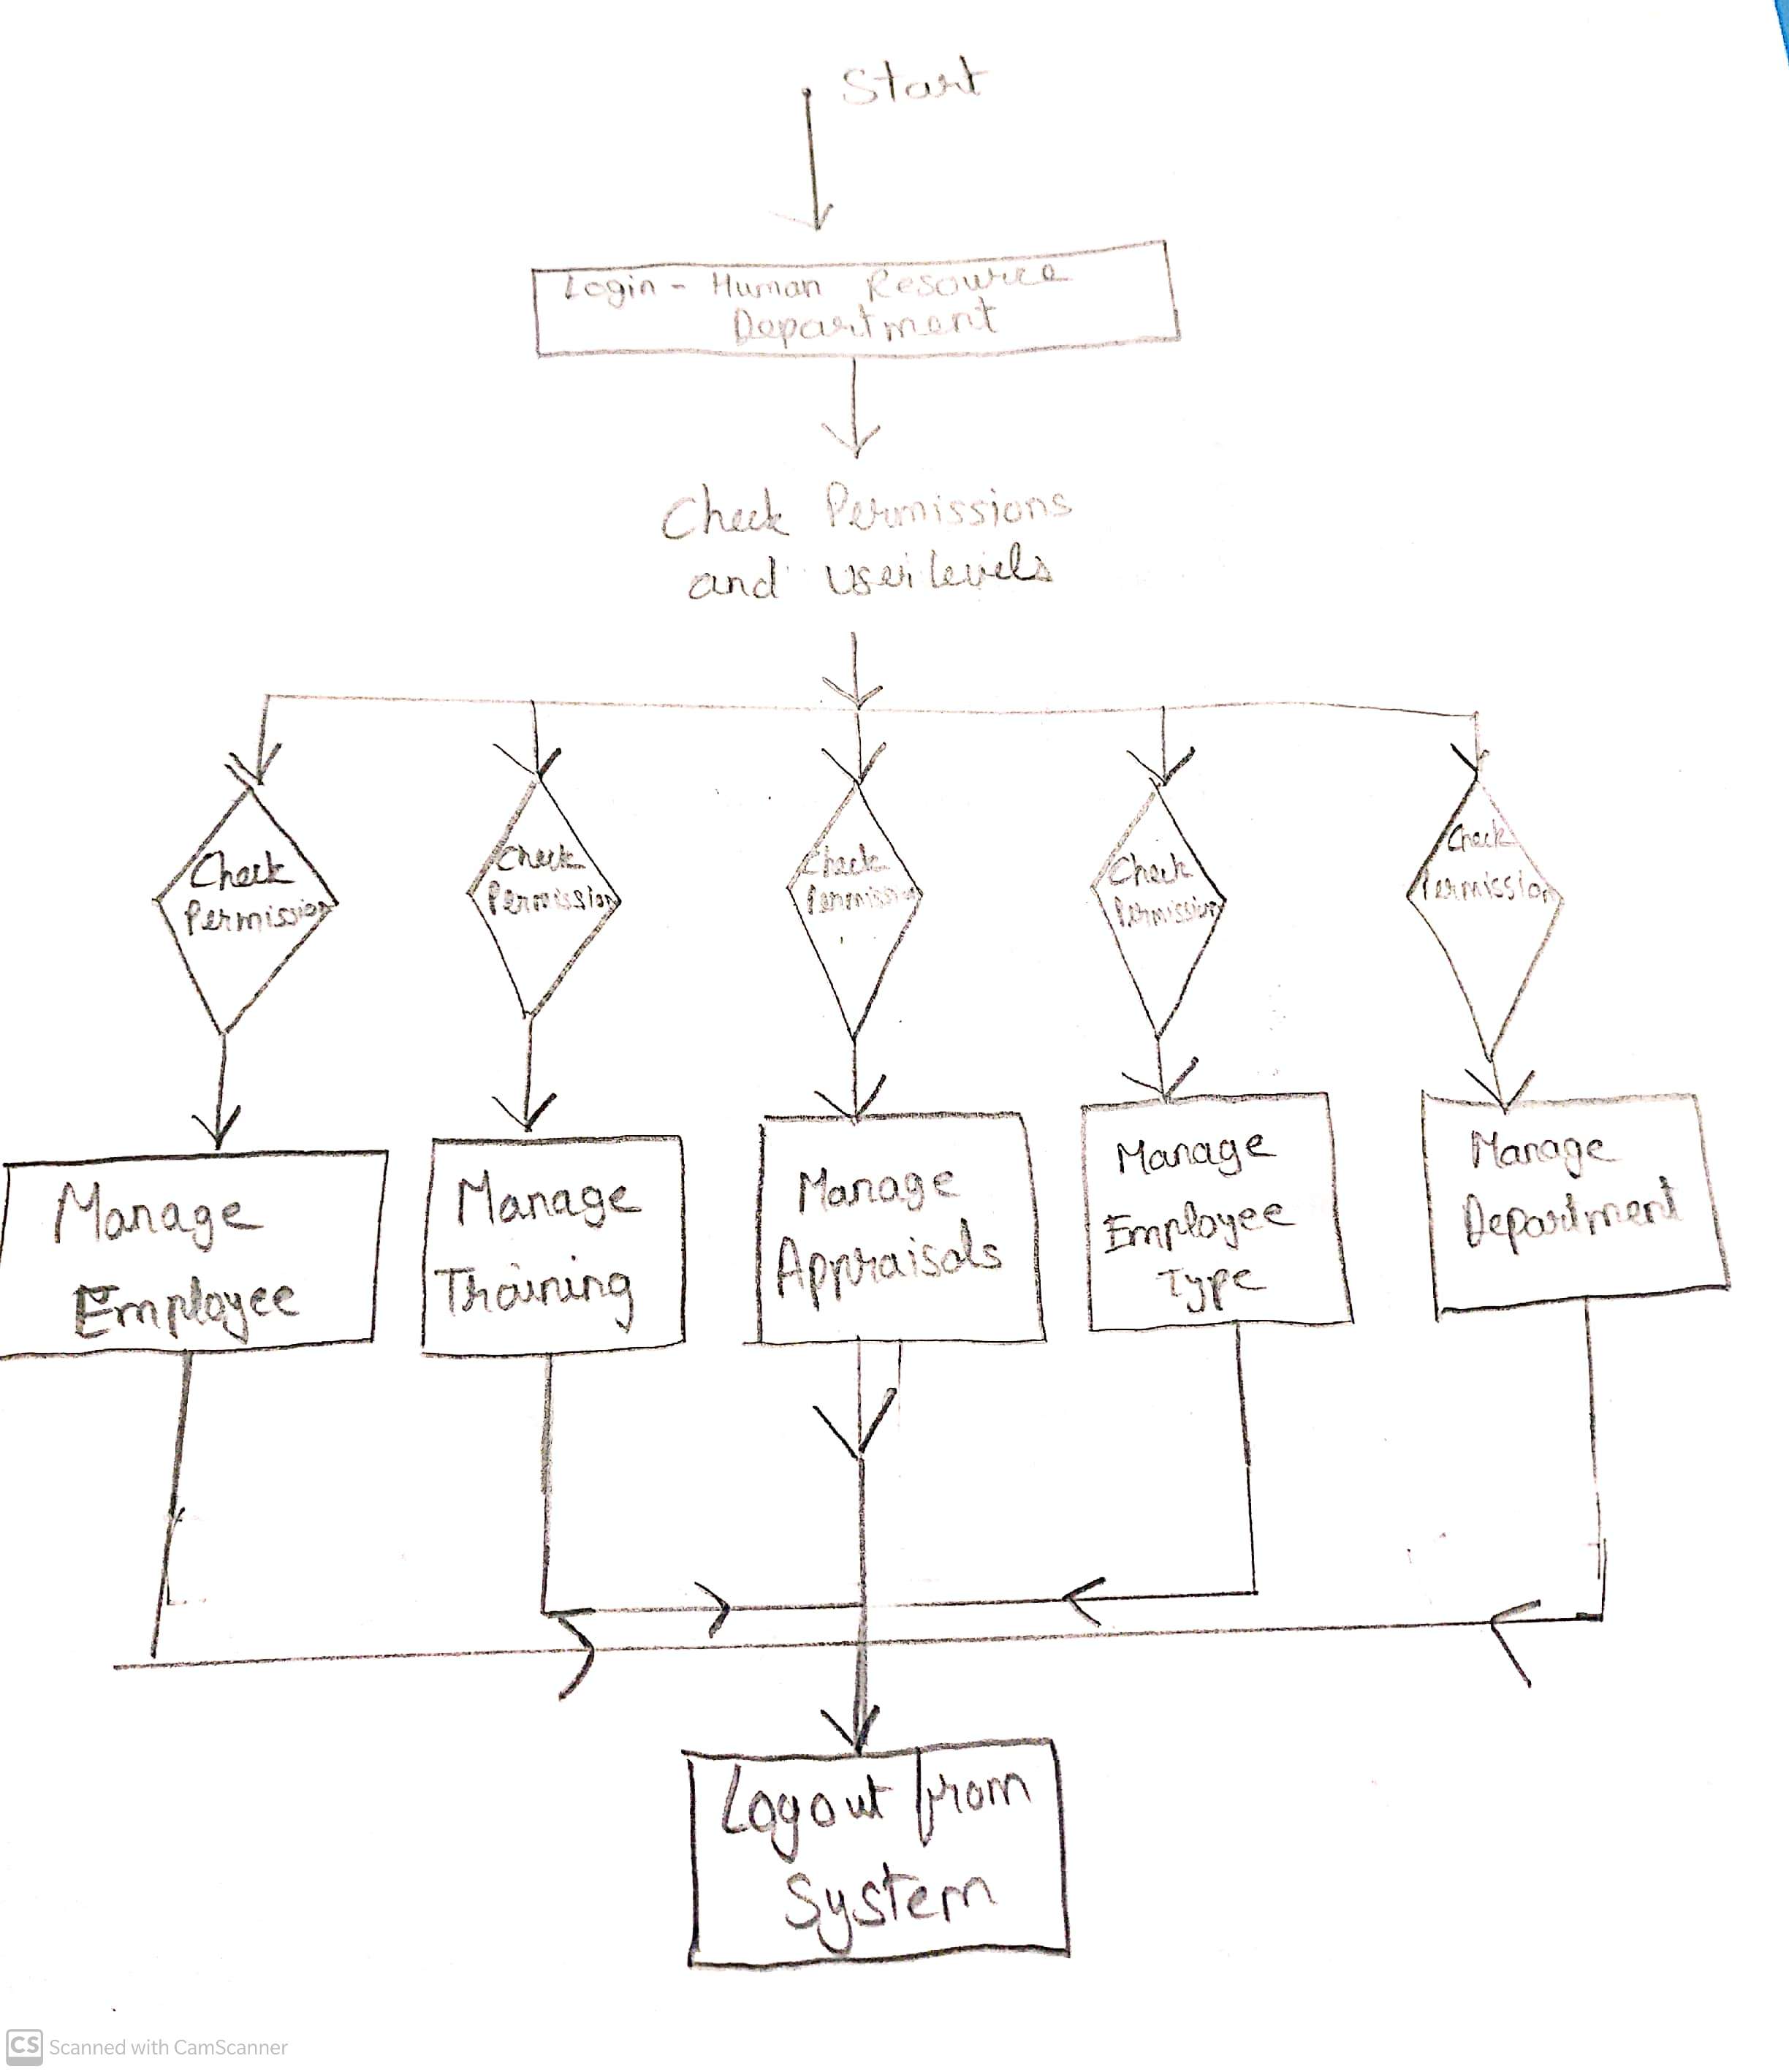 Start
Login - Human Resource
Department
Check Permissions
and userlevels
Check
Permission
Check
Permission
Check
Permission
Check
Permission
Check
Permission
Manage
Employee
Manage
Training
Manage
Appraisals
Manage
Employee
Type
Manage
Department
Logout from
System
CS Scanned with CamScanner